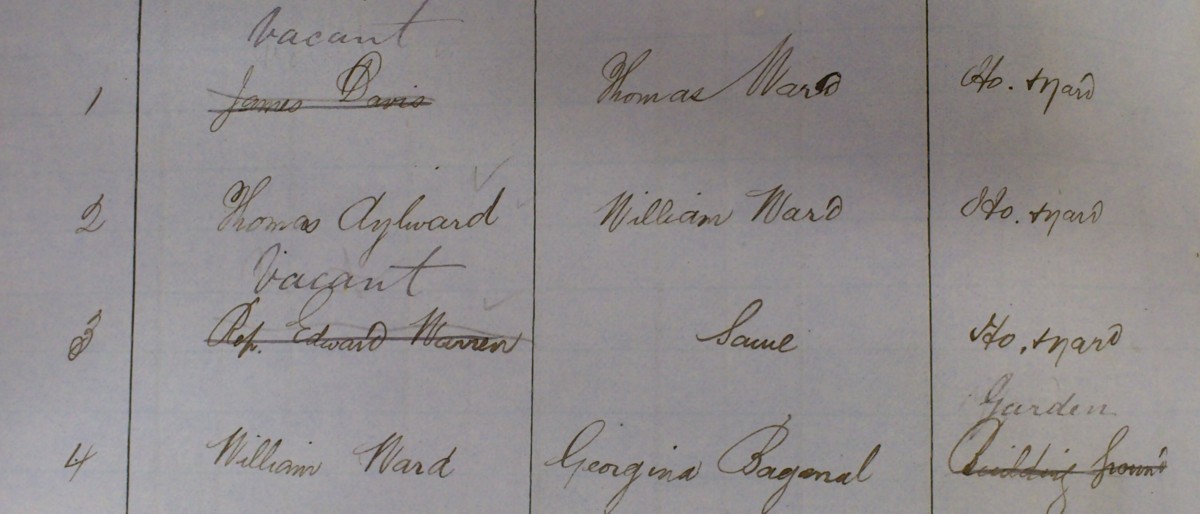 Vacant
1 James Davis Thomas Ward Ho. & yard
2 Thomas Aylward William Ward Ho. & yard
Vacant
3 Rep. Edward Warren Same Ho. & yard
Garden
4 William Ward Georgina Bagenal Building ground